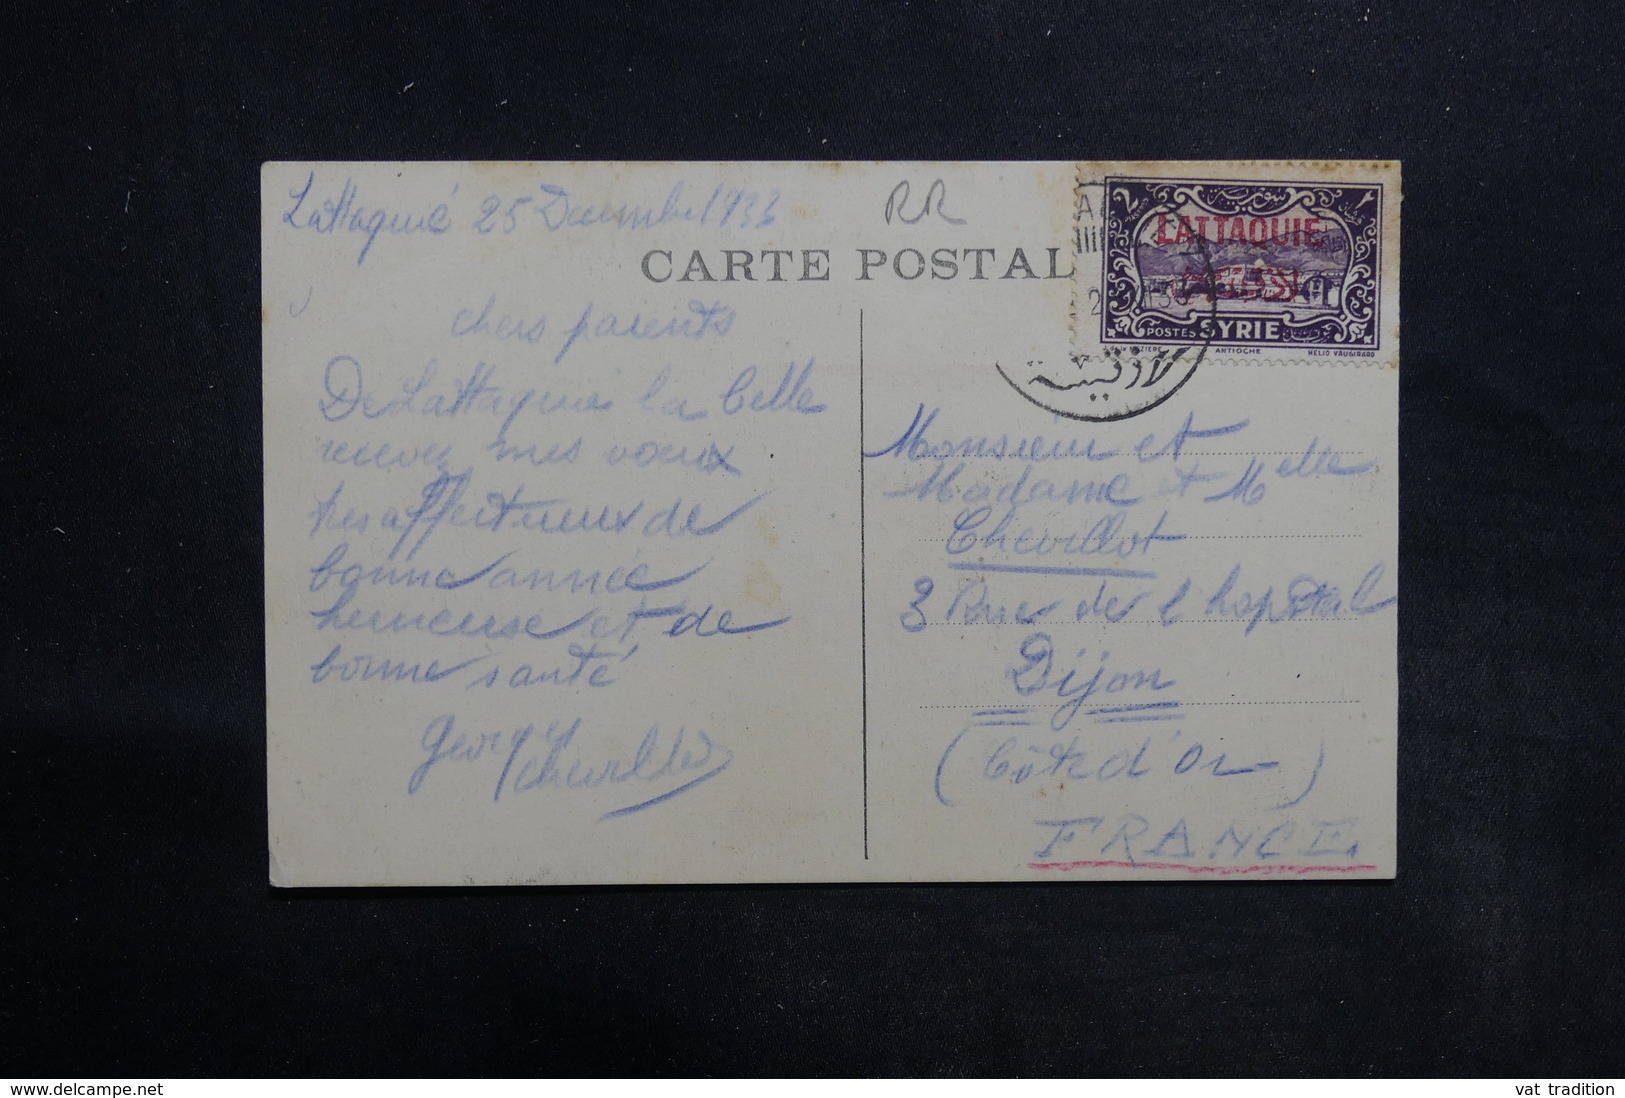 Lattaquié 25 Decembre 1933
RR
CARTE POSTAL
2
LATTAQUIE
POSTES SYRIE
ANTIOCHE
HELIO VAUGIRARD
اللاذقية
chers parents
De Lattaquie la belle
recevez mes voeux
tres affectueux de
bonne année
heureuse et de
bonne santé
Georges
Chevillot
Monsieur et
Madame et Melle
Chevillot
3 Rue de l hopital
Dijon
(Côte d'Or)
FRANCE.
www.delcampe.net
vat tradition